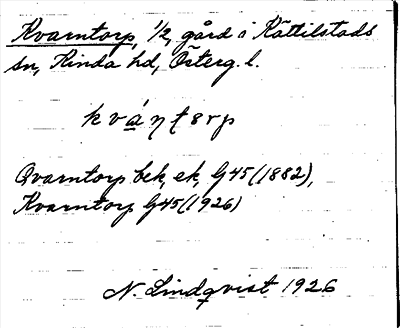 Kvarntorp, 1/2, gård i Kättilstads
sn, Kinda hd, Österg. l.
kvántorp
Qvarntorp bek, ek, G45 (1882),
Kvarntorp G45 (1926)
N. Lindqvist 1926